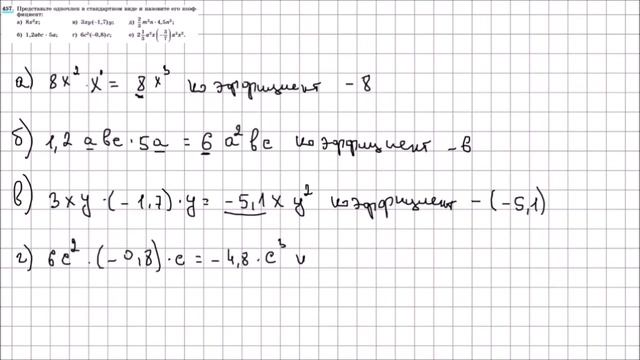 457. Представьте одночлен в стандартном виде и назовите его коэф-
фициент:
а) 8x²x; в) 3xy(-1,7)y; д) 2/3 m²n · 4,5n³;
б) 1,2abc · 5a; г) 6c²(-0,8)c;
а) 8x² · x¹ = 8x³ коэффициент - 8
б) 1,2 abc · 5a = 6 a²bc коэффициент - 6
в) 3xy · (-1,7) · y = -5,1xy² коэффициент - (-5,1)
г) 6c² · (-0,8) · c = -4,8 · c³ к